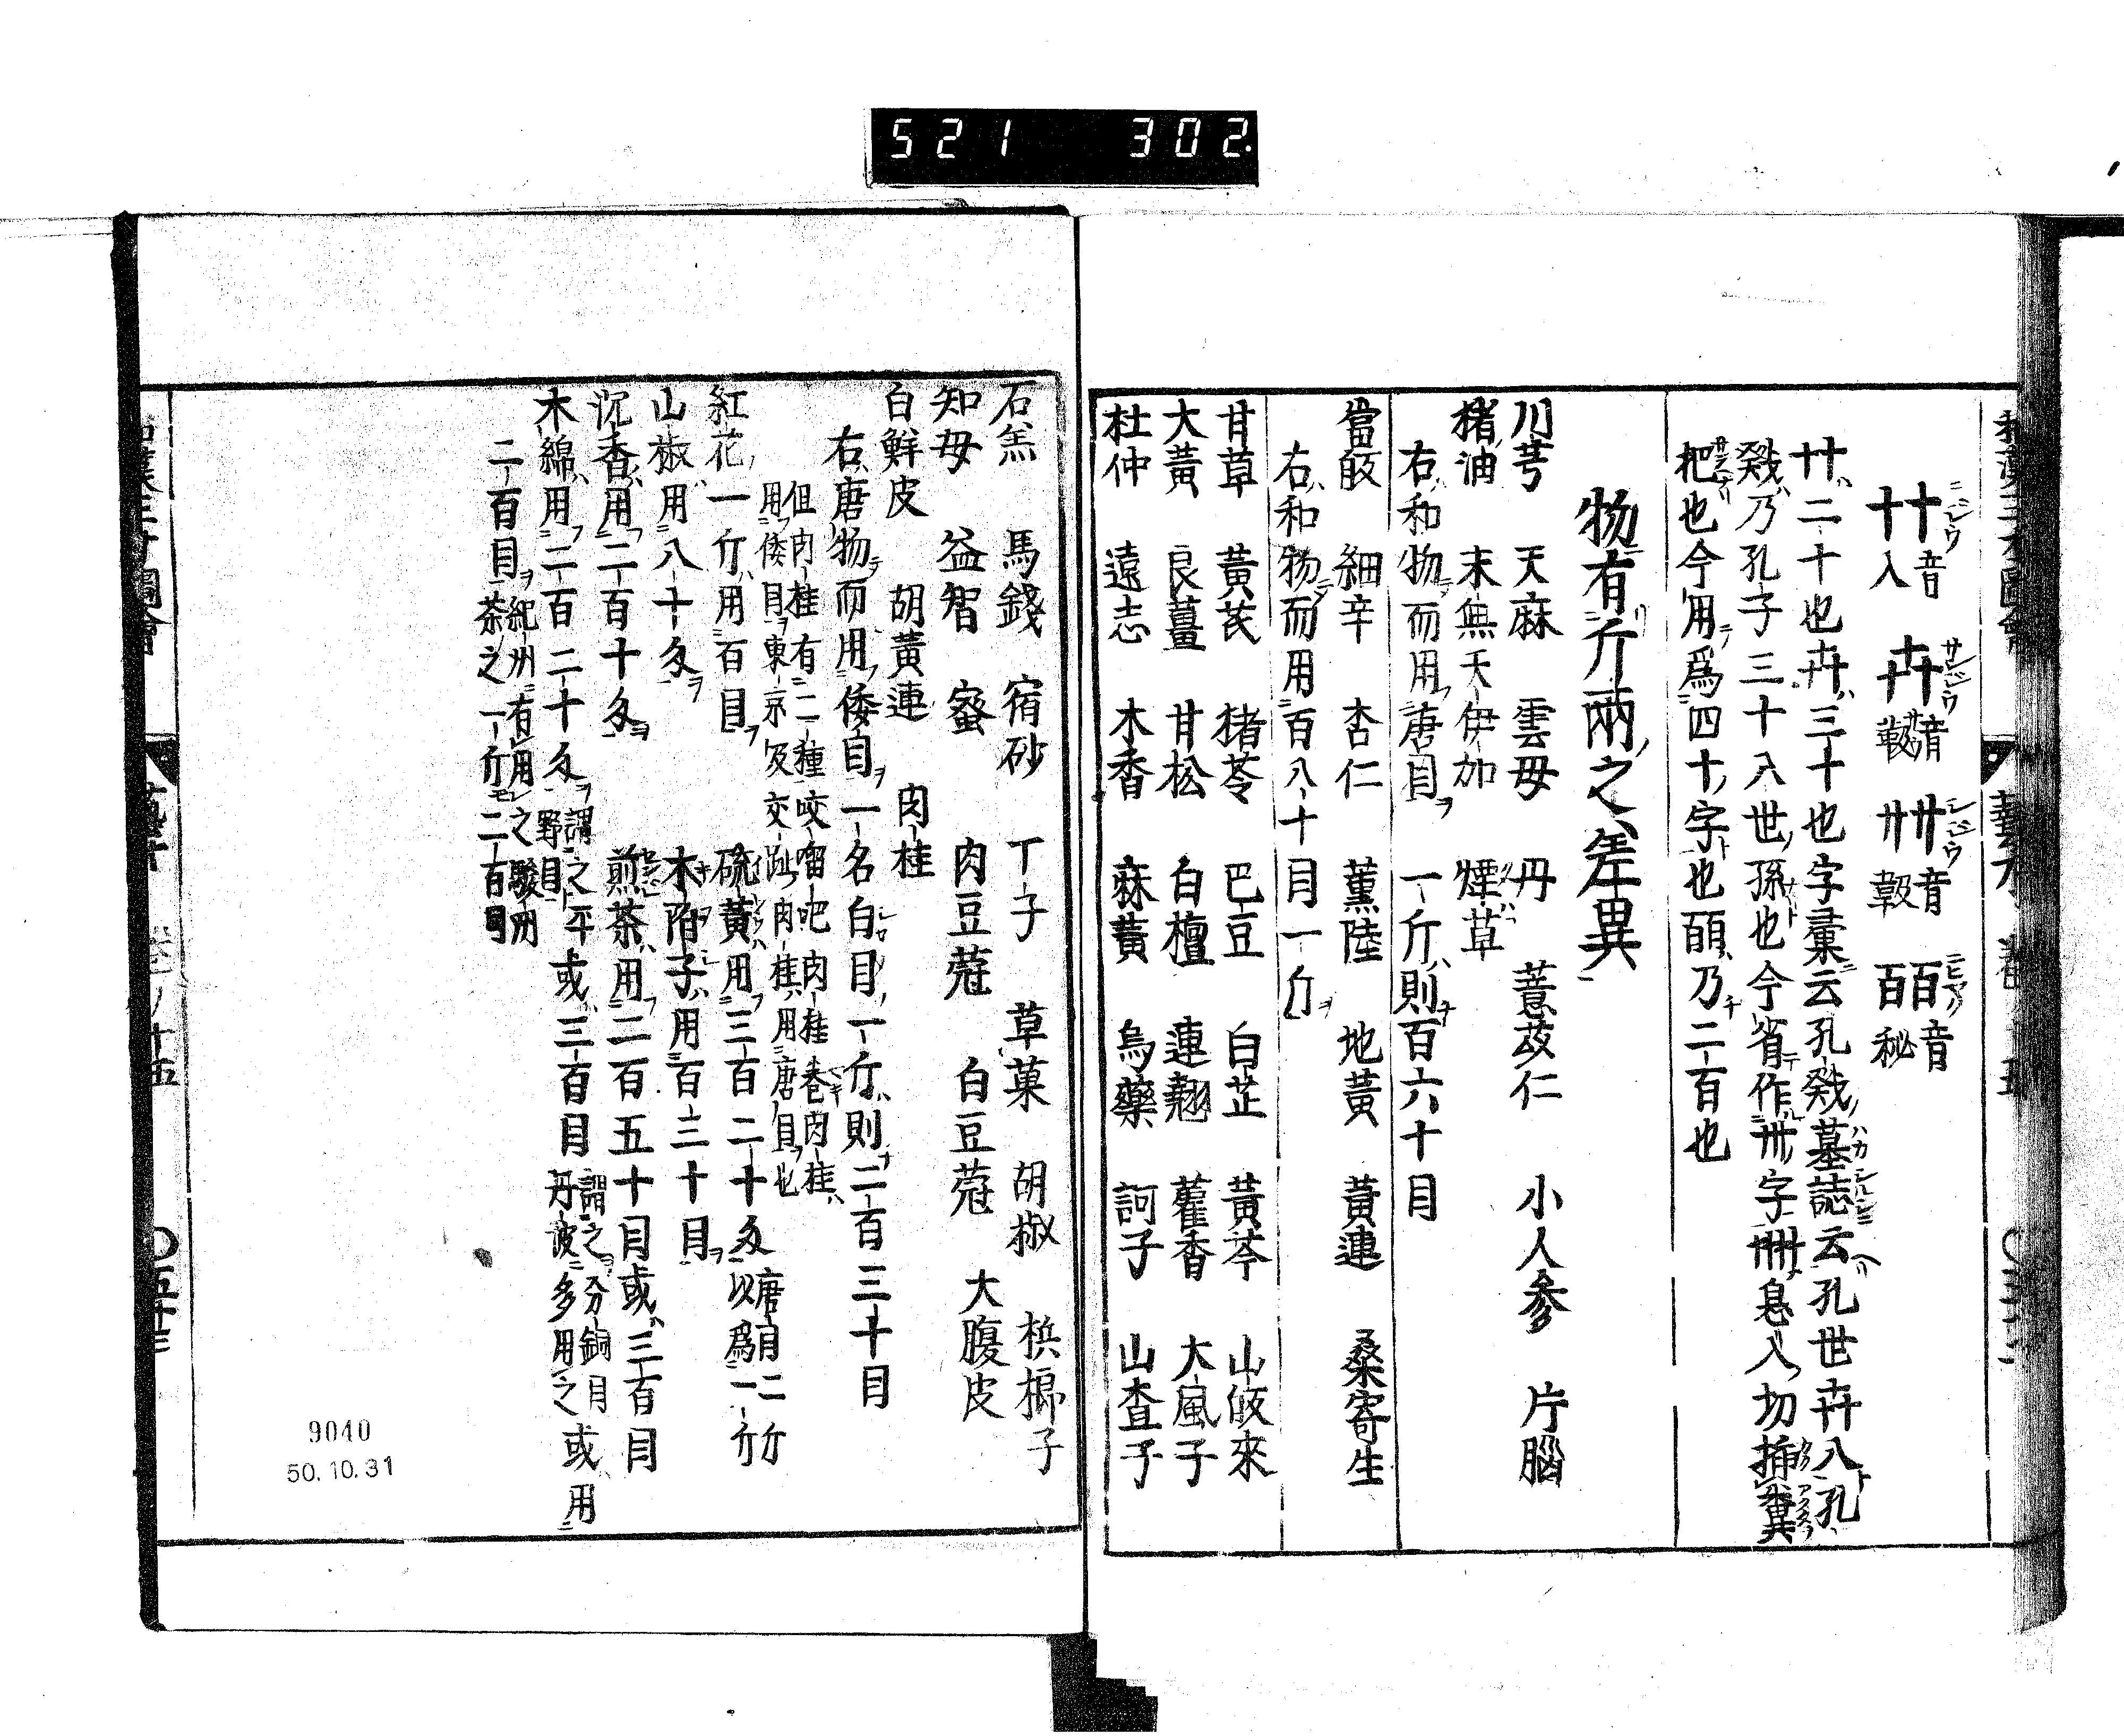 521 302.
廿音入 卅音趿 卌音 皕音秘
廿二十也卅三十也字彙云孔戣墓誌云孔世卅八孔
戣乃孔子三十八世孫也今省作卅字卌息入切插糞
杷也今用爲四十字也皕乃二百也
物有斤兩之差異
川芎 天麻 雲母 丹 薏苡仁 小人參 片腦
猪油 末無天伊加 煙草
右和物而用唐目一斤則百六十目
當皈 細辛 杏仁 薰陸 地黃 黃連 桑寄生
右和物而用百八十目一斤
甘草 黃芪 猪苓 巴豆 白芷 黃芩 山皈來
大黃 良薑 甘松 白檀 連翹 藿香 大風子
杜仲 遠志 木香 麻黃 烏藥 訶子 山査子
石羔 馬錢 宿砂 丁子 草菓 胡椒 檳榔子
知母 益智 蜜 肉豆蔲 白豆蔲 大腹皮
白鮮皮 胡黃連 肉桂
右唐物而用倭目一名白目一斤則二百三十目
但肉桂有二種咬𠺕吧肉桂巻肉桂
用倭目東京及交趾肉桂用唐目也
紅花一斤用百目 硫黃用三百二十匁唐目二斤以爲一斤
山椒用八十匁 木附子用百三十目
沉香用二百十匁 煎茶用二百五十目或三百目
木綿用二百二十匁謂之平野目或三百目謂之分銅目丹波多用之或用
二百目紀州有用之駿州茶之一斤二百目
和漢三才圖會 藝才 卷ノ十五
9040
50.10.31